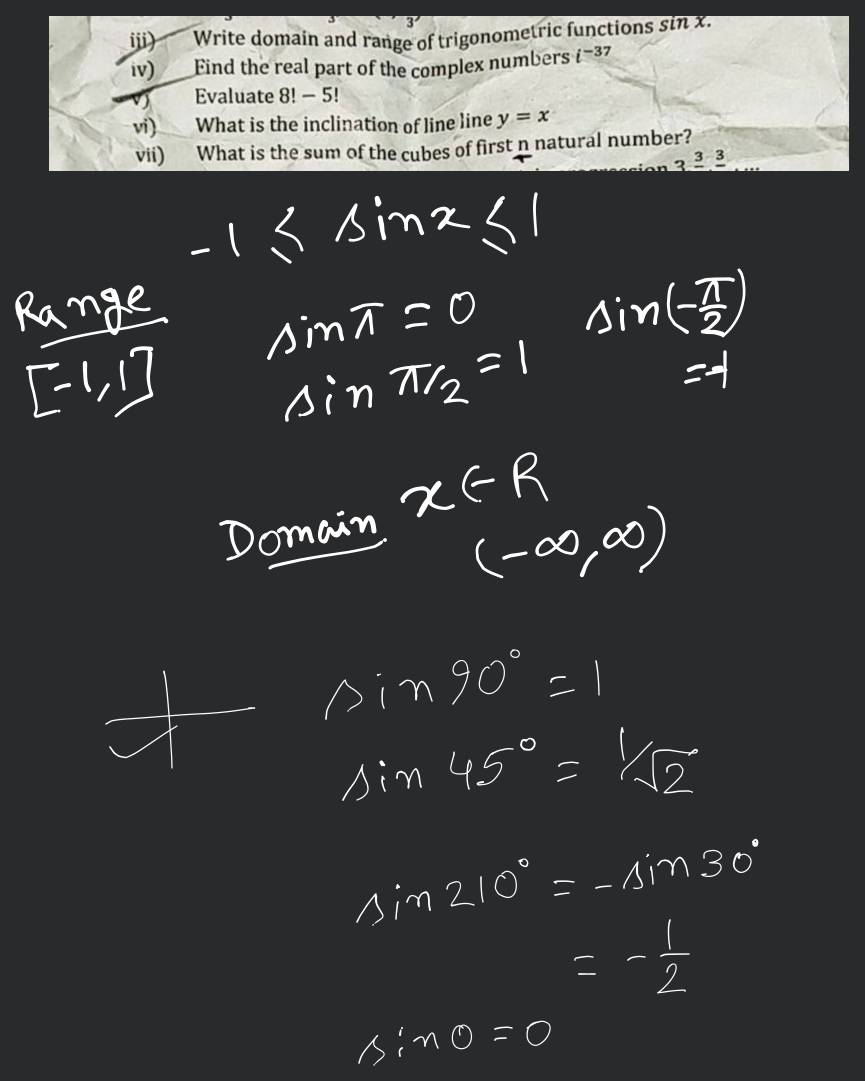 iii) Write domain and range of trigonometric functions sin x.
iv) Find the real part of the complex numbers i⁻³⁷
v) Evaluate 8! – 5!
vi) What is the inclination of line line y = x
vii) What is the sum of the cubes of first n natural number?
-1 ≤ sinx ≤ 1
Range
[-1,1]
sinπ = 0
sin π/2 = 1
sin(-π/2)
=-1
Domain x∈R
(-∞,∞)
sin90° = 1
sin 45° = 1/√2
sin210° = -sin30°
= -1/2
sin0 = 0